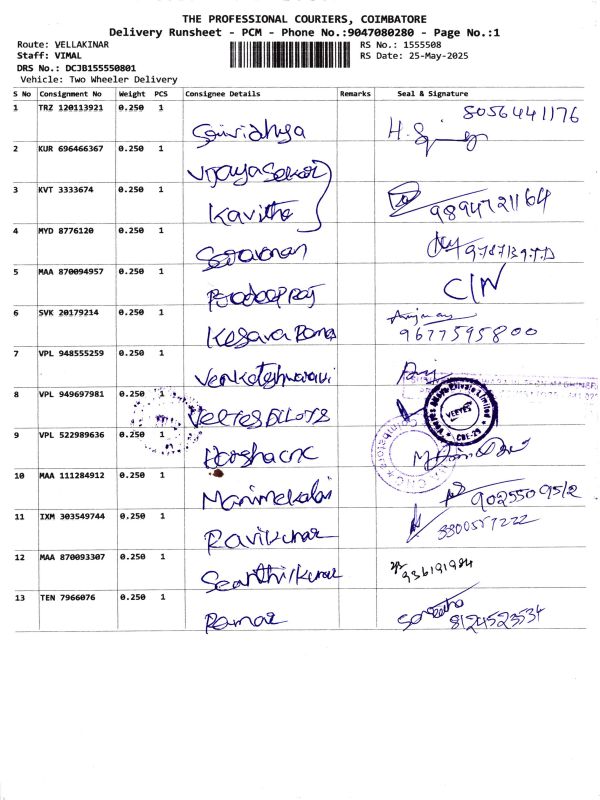 THE PROFESSIONAL COURIERS, COIMBATORE
Delivery Runsheet - PCM - Phone No.:9047080280 - Page No.:1
Route: VELLAKINAR RS No.: 1555508
Staff: VIMAL RS Date: 25-May-2025
DRS No.: DCJB155550801
Vehicle: Two Wheeler Delivery
S No Consignment No Weight PCS Consignee Details Remarks Seal & Signature
1 TRZ 120113921 0.250 1 8056441176
2 KUR 696466367 0.250 1 Vijayasekar
3 KVT 3333674 0.250 1 Kavitha 9894721164
4 MYD 8776120 0.250 1 Saravanan
5 MAA 870094957 0.250 1 Pradeep raj C/N
6 SVK 20179214 0.250 1 Kesava Raman 9677595800
7 VPL 948555259 0.250 1
8 VPL 949697981 0.250 1 VEETES
9 VPL 522989636 0.250 1 CBE-29
10 MAA 111284912 0.250 1 Manimekalai
11 IXM 303549744 0.250 1 Ravikumar
12 MAA 870093307 0.250 1 Senthilkumar
13 TEN 7966076 0.250 1 8124523534